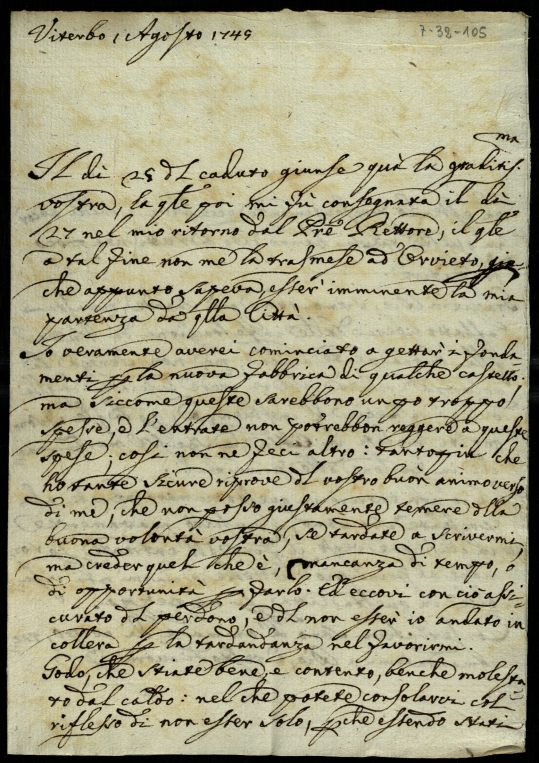 Viterbo 1 Agosto 1749
7-32-105
Il dì 25 dl caduto giunse quà la graditis.ma
vostra, la qle poi mi fù consegnata il dì
27 nel mio ritorno dal Pre Rettore, il qle
a tal fine non me la trasmese ad Orvieto, già
che appunto sapeva, esser imminente la mia
partenza da qlla Città.
Io veramente averei cominciato a gettar i fonda
menti p la nuova fabbrica di qualche castello:
ma siccome queste sarebbono un po troppo
spesse, e l'entrate non potrebbon reggere à queste
spese; così non ne feci altro: tantopiu che
hò tante sicure riprove dl vostro buon animo verso
di me, che non posso giustamente temere dlla
buona volontà vostra, se tardate a scrivermi,
ma creder quel che è, mancanza di tempo, ò
di opportunità p farlo. Ed eccovi con ciò assi
curato dl perdono, e dl non esser io andato in
collera p la tardandanza nel favorirmi.
Godo, che stiate bene, e contento, benche molesta
to dal caldo: nel che potete consolarvi col
riflesso di non ester solo, pche estendo stati